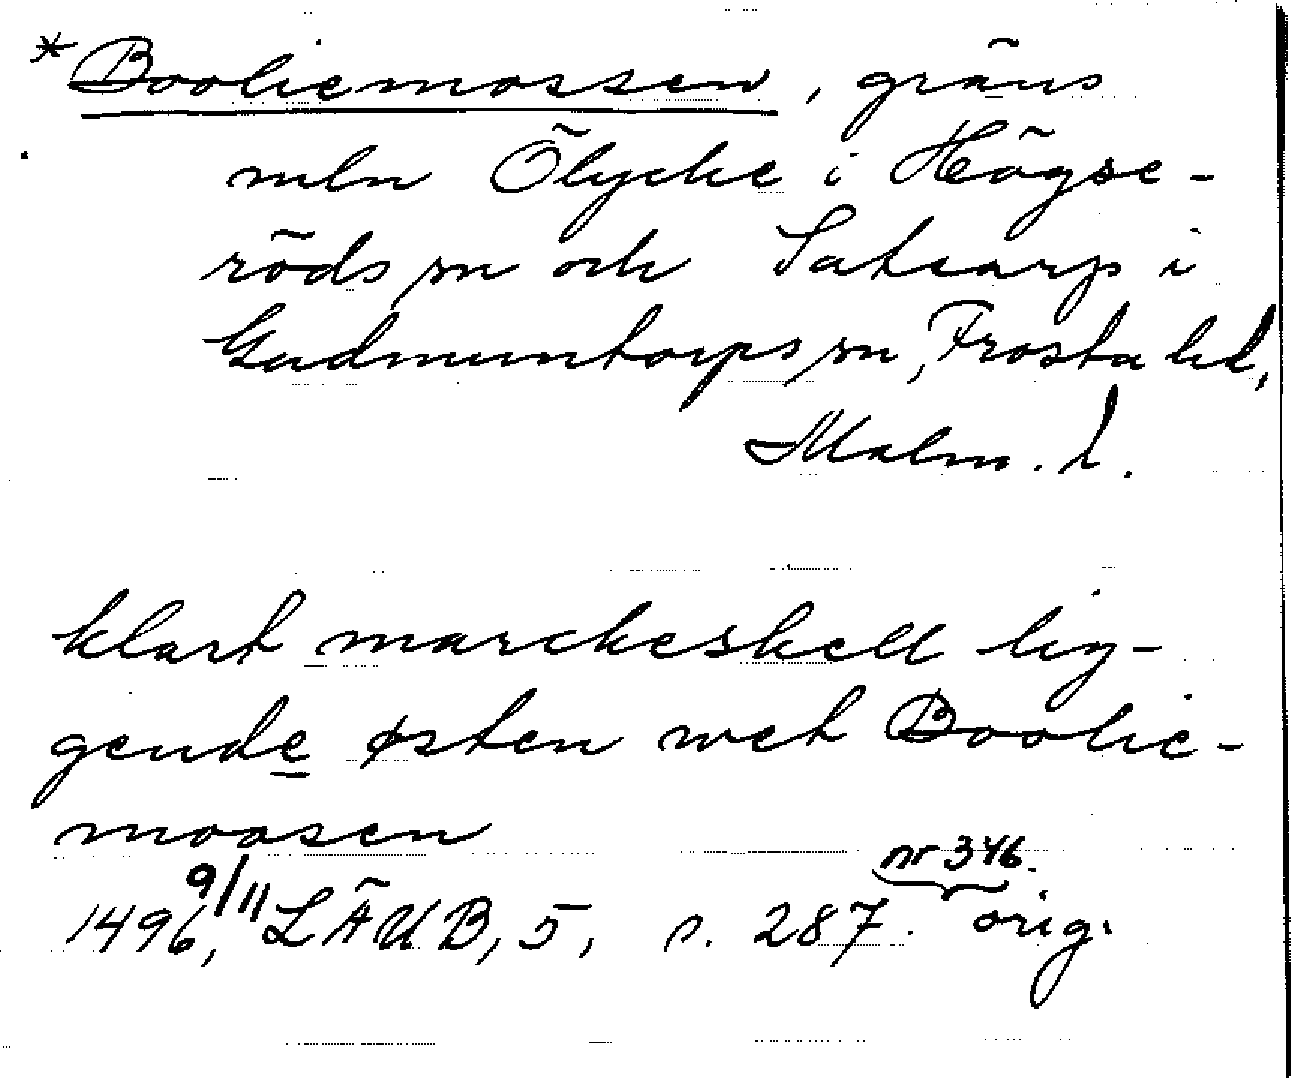 *Booliemossen, gräns
mln Ölycke i Högse-
röds sn och Satsarp i
Gudmuntorps sn, Frosta hd,
Malm. l.
klart marckeskell lig-
gende østen wet Boolie-
moosen
nr 346.
1496, 9/11 LÄUB, 5, s. 287. orig.